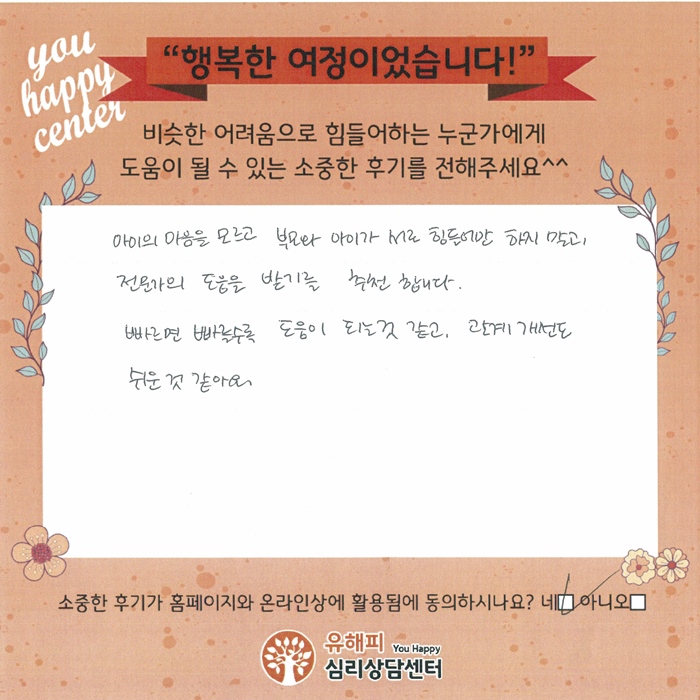 you
happy
center
“행복한 여정이었습니다!”
비슷한 어려움으로 힘들어하는 누군가에게
도움이 될 수 있는 소중한 후기를 전해주세요^^
아이의 마음을 모르고 부모와 아이가 서로 힘들어만 하지 말고,
전문가의 도움을 받기를 추천 합니다.
빠르면 빠를수록 도움이 되는것 같고, 관계개선도
쉬운 것 같아요
소중한 후기가 홈페이지와 온라인상에 활용됨에 동의하시나요? 네☑ 아니오☐
유해피 You Happy
심리상담센터